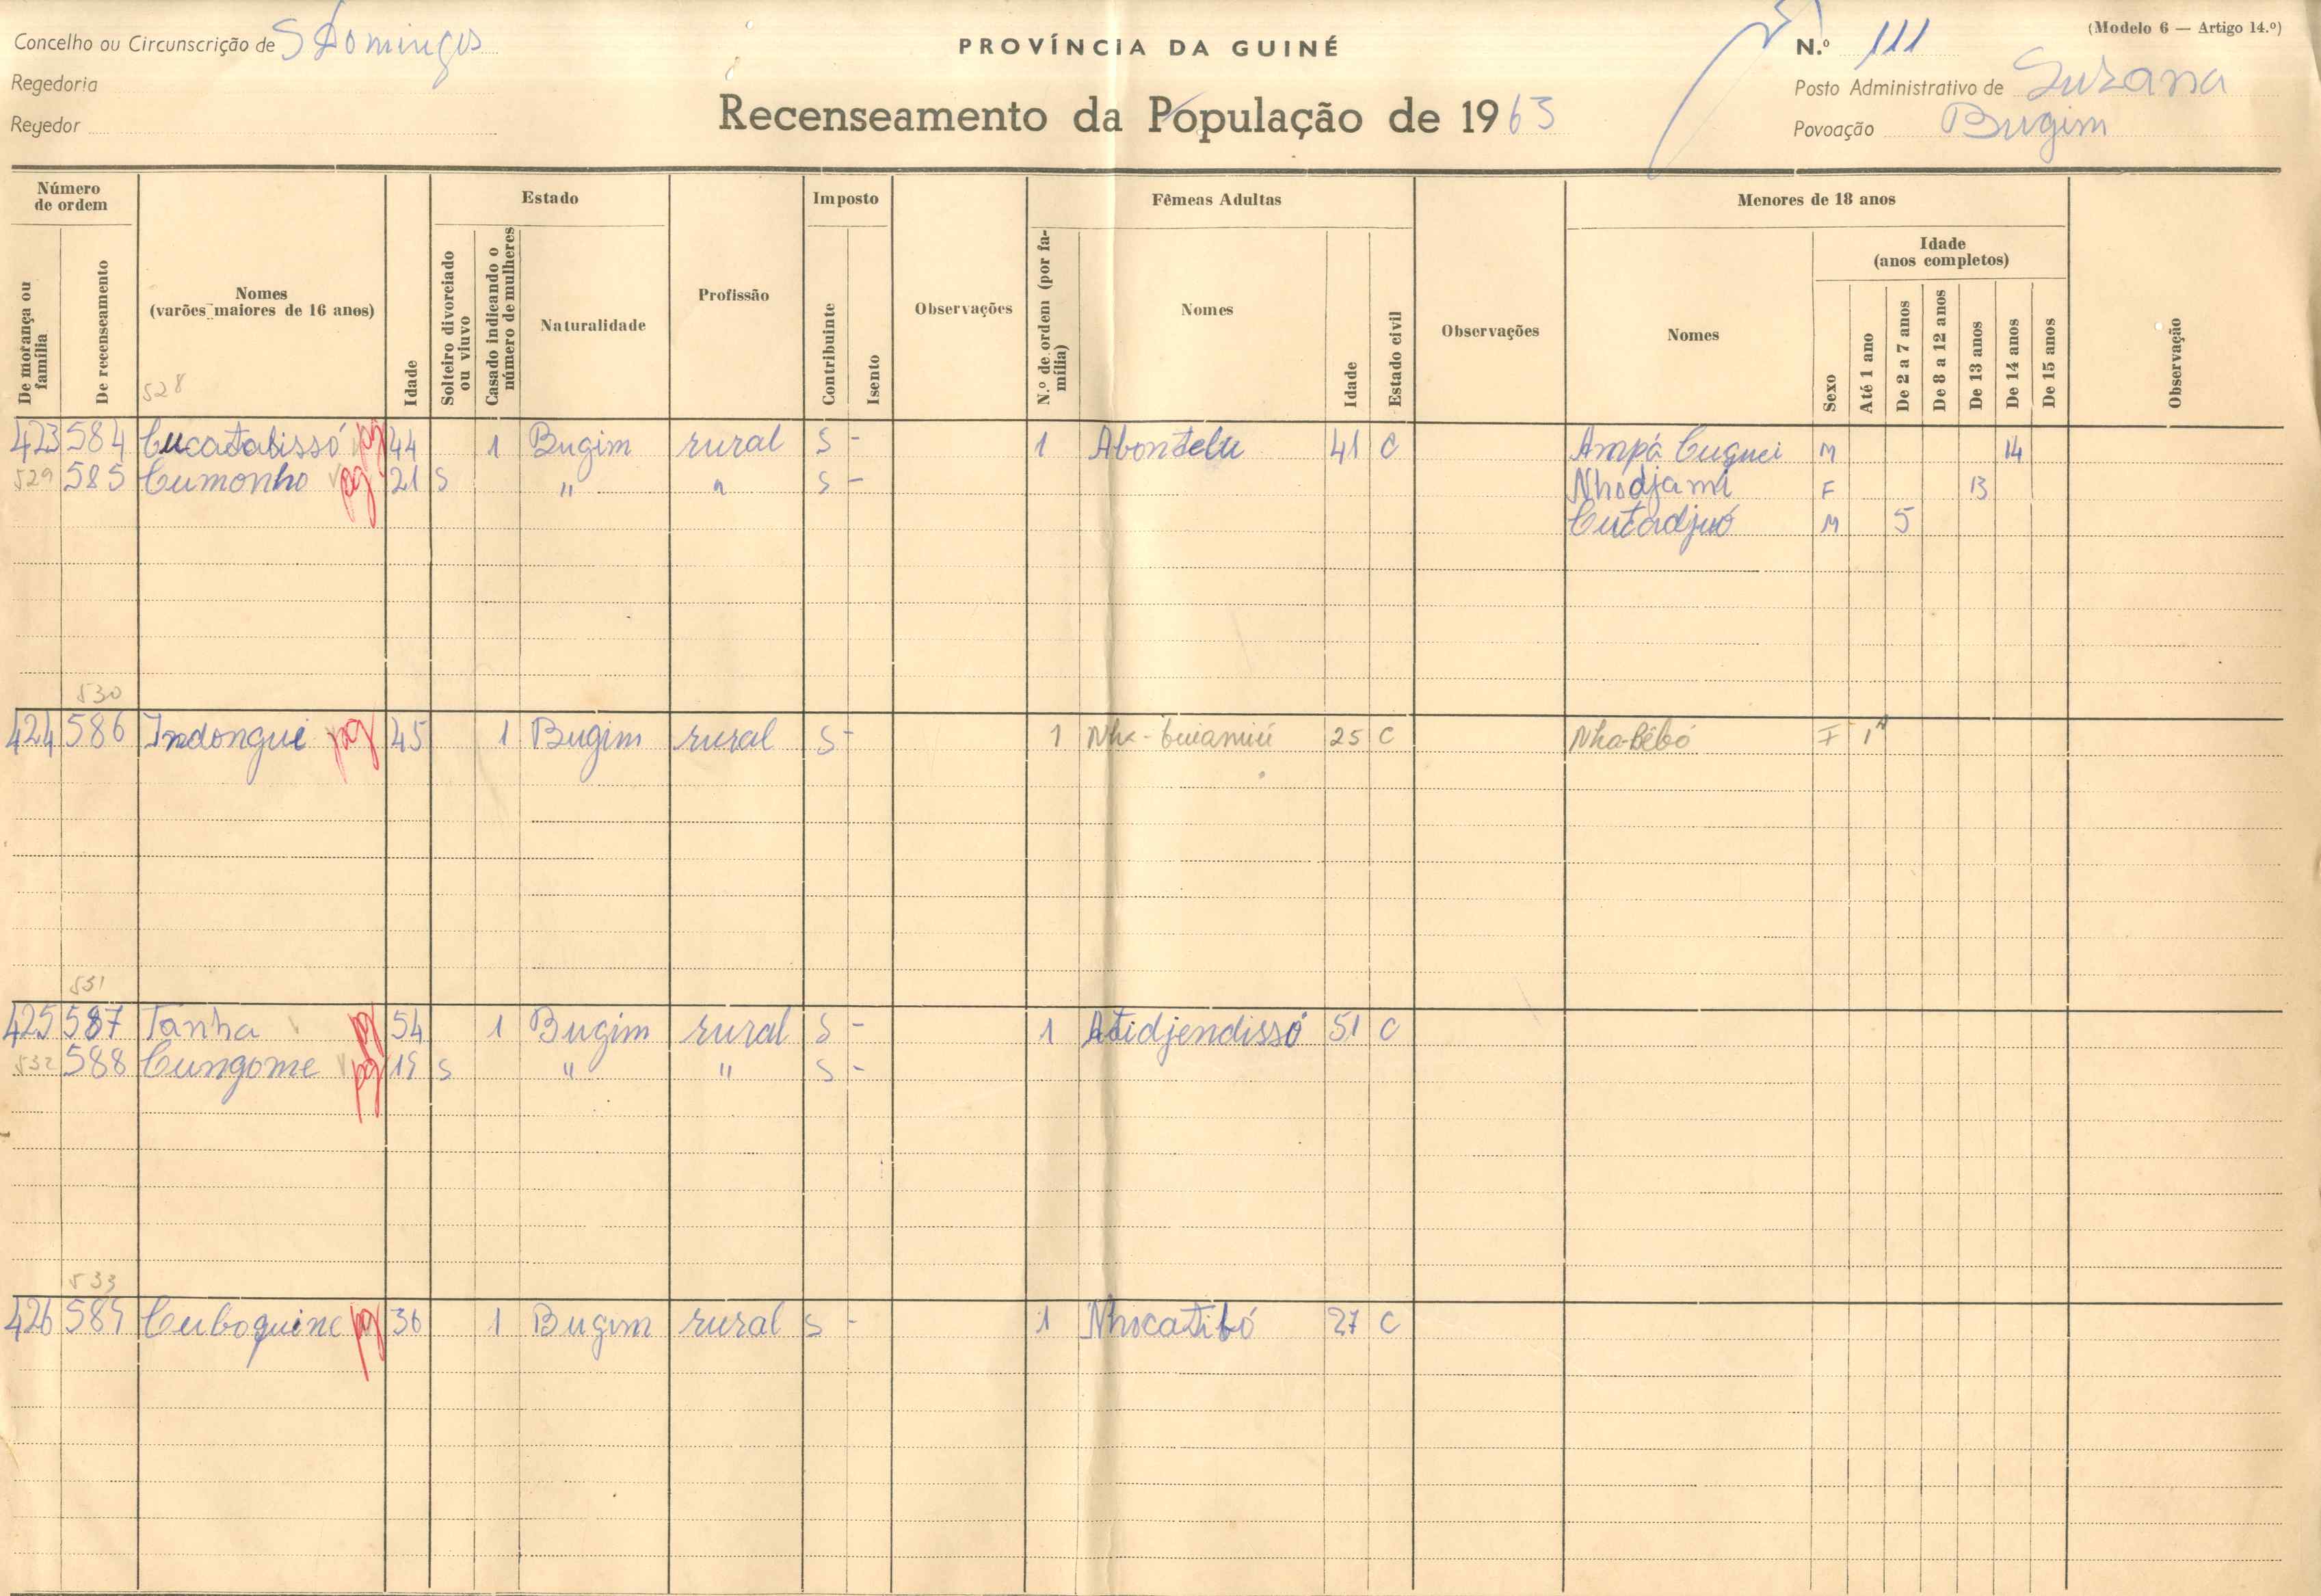 (Modelo 6 — Artigo 14.º)
Concelho ou Circunscrição de S Domingos
PROVÍNCIA DA GUINÉ
N.º 111
Regedoria
Posto Administrativo de Suzana
Regedor
Recenseamento da População de 1963
Povoação Bugim
Número de ordem
De morança ou família
De recenseamento
Nomes
(varões maiores de 16 anos)
528
Idade
Estado
Solteiro divorciado ou viuvo
Casado indicando o número de mulheres
Naturalidade
Profissão
Imposto
Contribuinte
Isento
Observações
N.º de ordem (por família)
Fêmeas Adultas
Nomes
Idade
Estado civil
Observações
Menores de 18 anos
Nomes
Sexo
Idade
(anos completos)
Até 1 ano
De 2 a 7 anos
De 8 a 12 anos
De 13 anos
De 14 anos
De 15 anos
Observação
423 584 Cucatabissó pg 44 1 Bugim rural S - 1 Abontelu 41 C Ampá Cuguei M 14
529 585 Cumonho pg 21 S " " S - Nhodjami F 13
Cutadjuó M 5
530
424 586 Indongui pg 45 1 Bugim rural S - 1 25 C Nha-Bêbó F 1A
531
425 587 Tanha pg 54 1 Bugim rural S - 1 Atidjendissó 51 C
532 588 Cungome pg 19 S " " S -
533
426 589 Cuboquine pg 36 1 Bugim rural S - 1 Nhocatibó 27 C